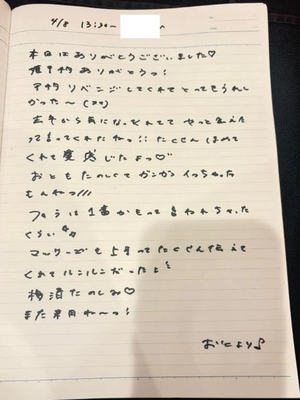 4/8 13:30~
本日はありがとうございました♡
ありがとうっ!
リベンジしてくれてとってもうれし
かった~
去年から気になってくれててやっと会えた
って言ってくれたねっ!! たくさんほめて
くれて
おともたのしくてガンガンイっちゃった
もんねっ///
フェラは1番かもって言われちゃった
くらい
マッサージも上手ってたくさん伝えて
くれてルンルンだったよ
梅酒たのしみ♡
また来月ね~っ!
より♪